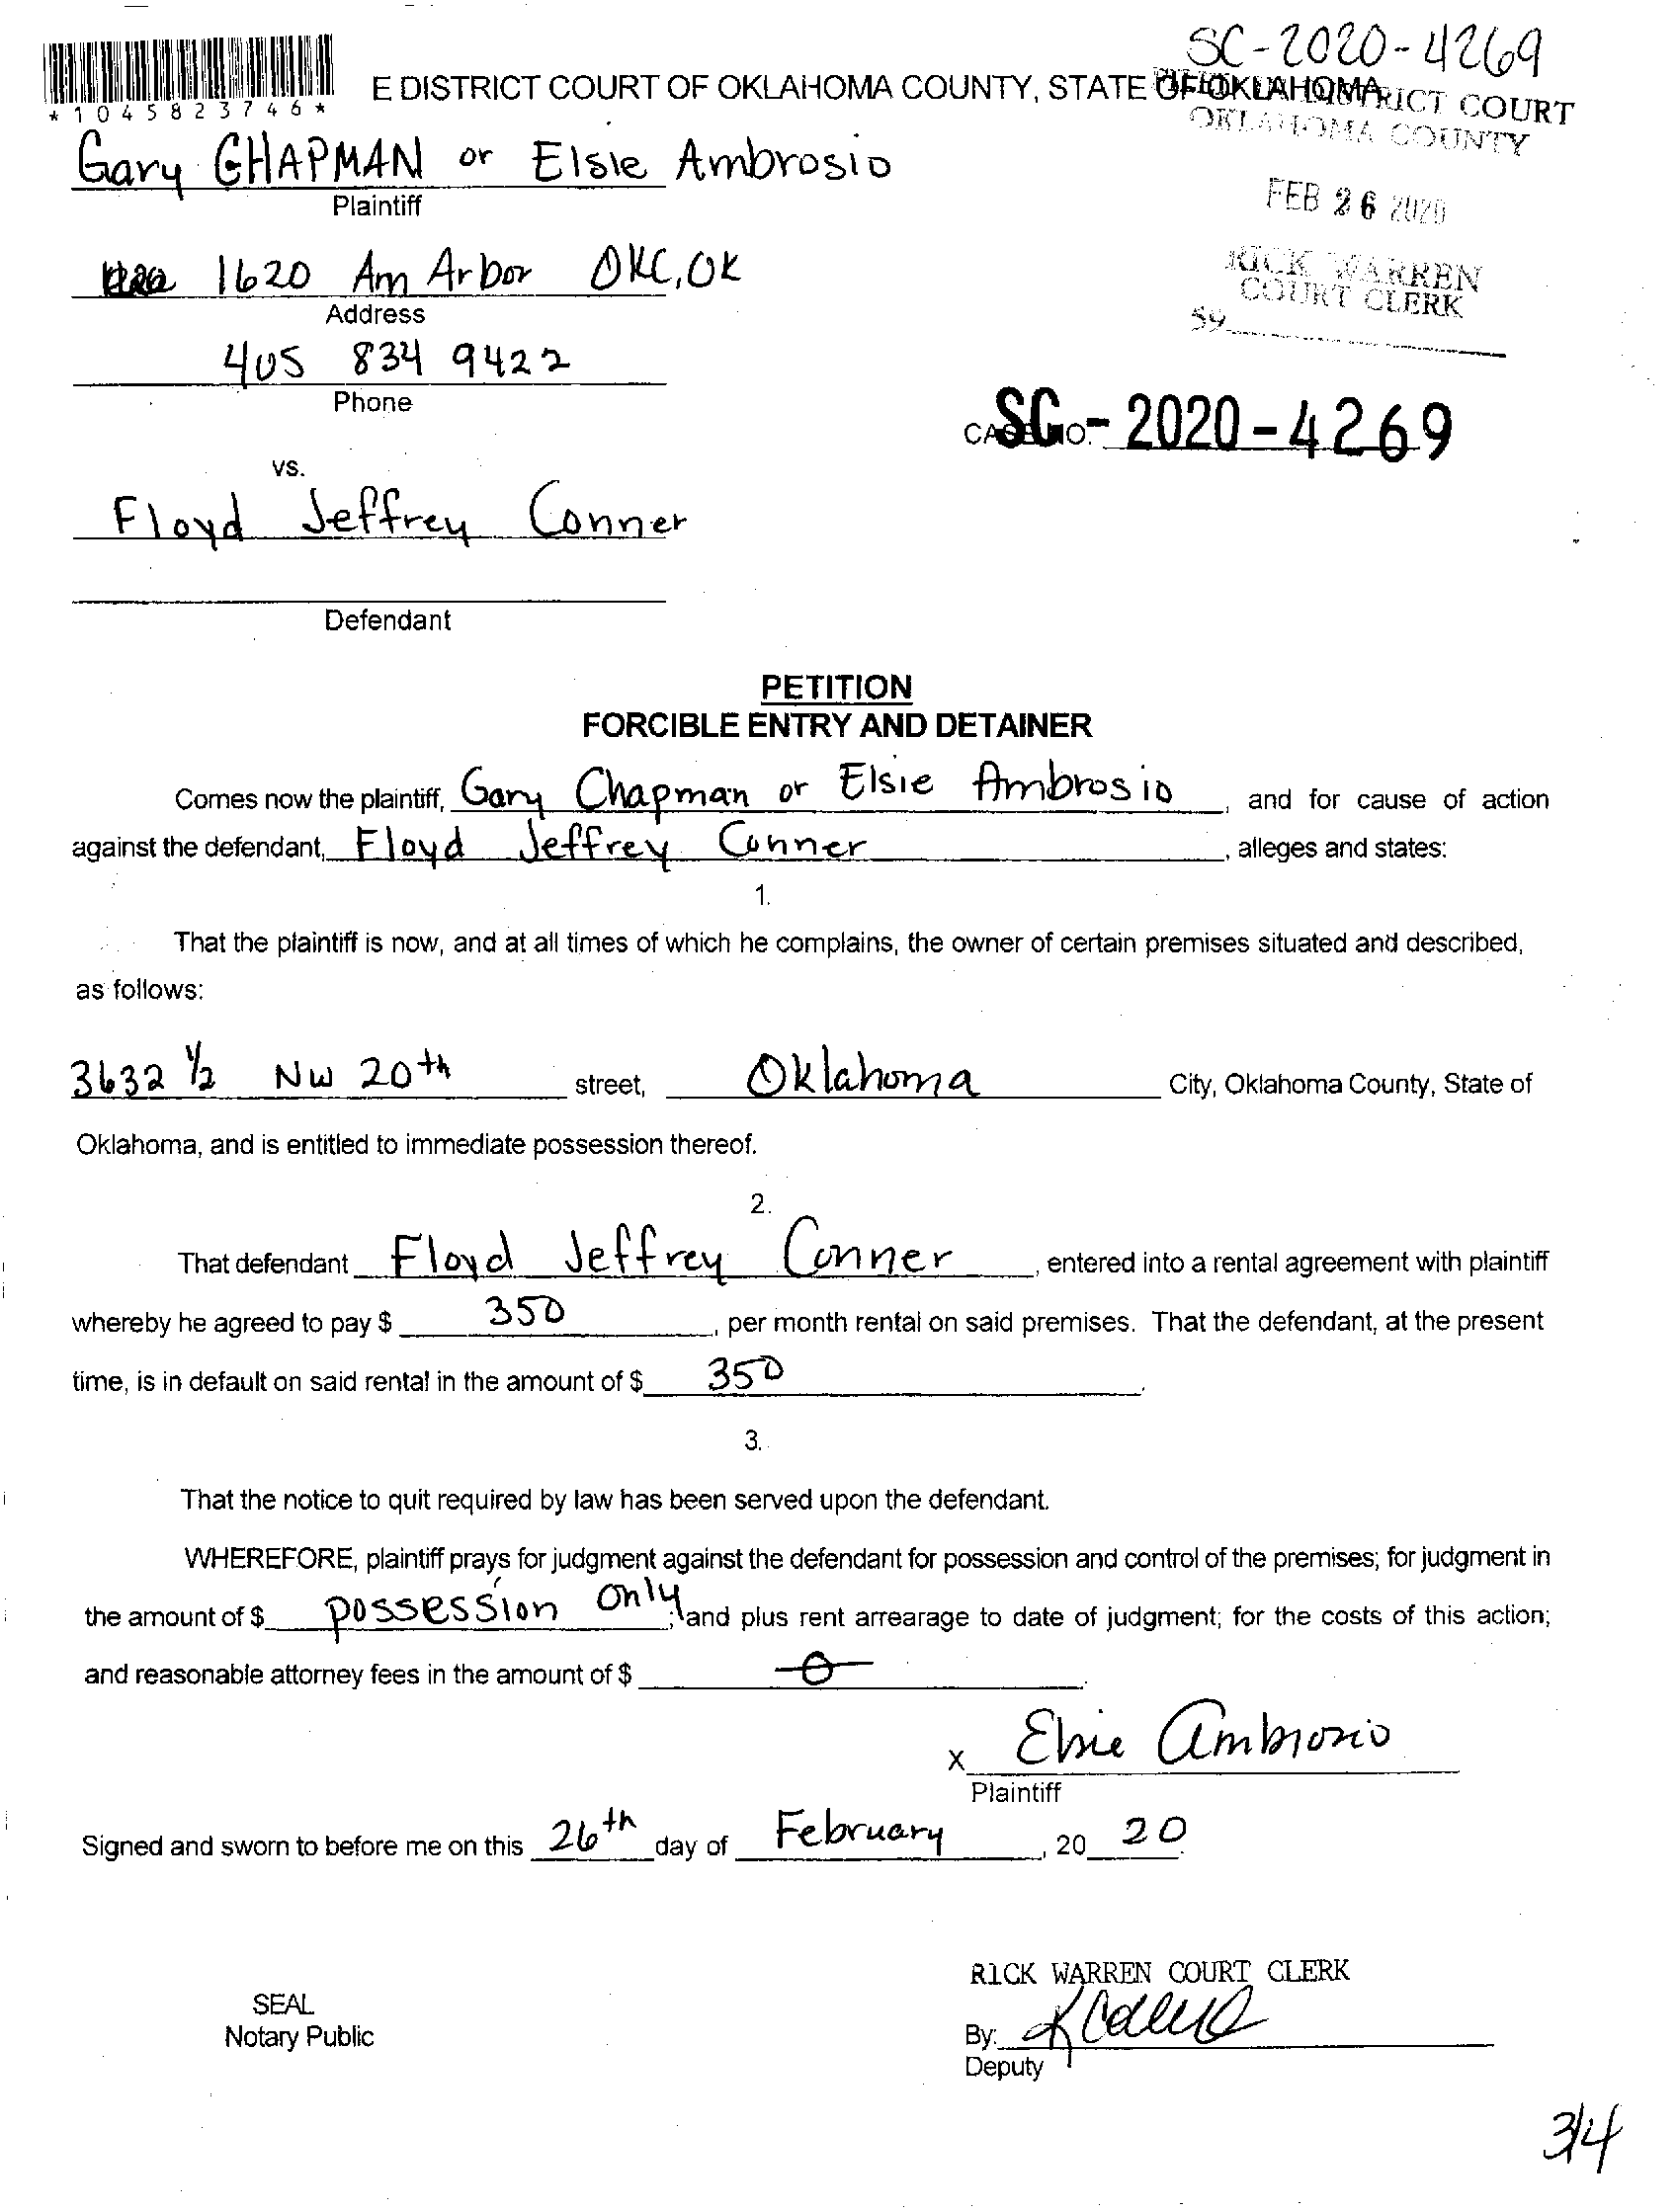 SC-2020-4269
E DISTRICT COURT OF OKLAHOMA COUNTY, STATE OF OKLAHOMA
DISTRICT COURT
OKLAHOMA COUNTY
*1045823746*
Gary CHAPMAN or Elsie Ambrosio
Plaintiff
FEB 26 2020
1620 Am Arbor OKC, OK
Address
RICK WARREN
COURT CLERK
59
405 834 9422
Phone
CASE NO. SC-2020-4269
vs.
Floyd Jeffrey Conner
Defendant
PETITION
FORCIBLE ENTRY AND DETAINER
Comes now the plaintiff, Gary Chapman or Elsie Ambrosio, and for cause of action
against the defendant, Floyd Jeffrey Conner, alleges and states:
1.
That the plaintiff is now, and at all times of which he complains, the owner of certain premises situated and described,
as follows:
3632 ½ NW 20th street, Oklahoma City, Oklahoma County, State of
Oklahoma, and is entitled to immediate possession thereof.
2.
That defendant Floyd Jeffrey Conner, entered into a rental agreement with plaintiff
whereby he agreed to pay $ 350, per month rental on said premises. That the defendant, at the present
time, is in default on said rental in the amount of $ 350.
3.
That the notice to quit required by law has been served upon the defendant.
WHEREFORE, plaintiff prays for judgment against the defendant for possession and control of the premises; for judgment in
the amount of $ possession only; and plus rent arrearage to date of judgment; for the costs of this action;
and reasonable attorney fees in the amount of $ 0.
x Elsie Ambrosio
Plaintiff
Signed and sworn to before me on this 26th day of February, 20 20.
RICK WARREN COURT CLERK
SEAL
Notary Public
By:
Deputy
3/4